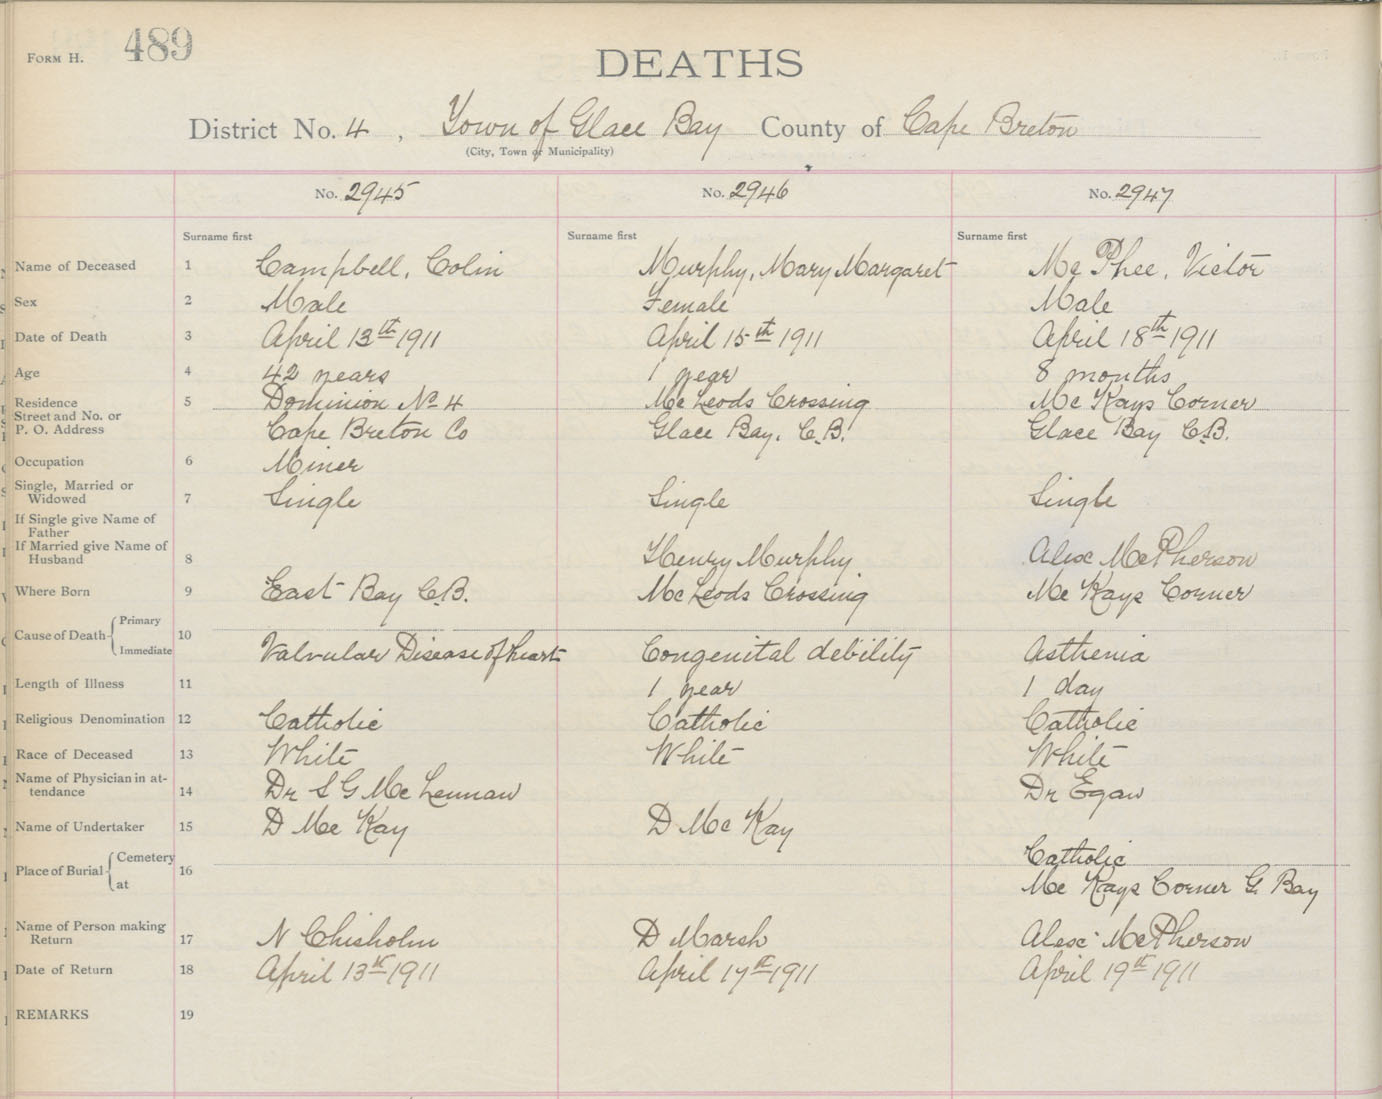 FORM H. 489
DEATHS
District No. 4 , Town of Glace Bay County of Cape Breton
(City, Town or Municipality)
No. 2945 No. 2946 No. 2947
Surname first Surname first Surname first
Name of Deceased 1 Campbell, Colin Murphy, Mary Margaret Mc Phee, Victor
Sex 2 Male Female Male
Date of Death 3 April 13th 1911 April 15th 1911 April 18th 1911
Age 4 42 years 1 year 8 months
Residence 5 Dominion No 4 Mc Leods Crossing Mc Kays Corner
Street and No. or
P. O. Address Cape Breton Co Glace Bay, C.B. Glace Bay C.B.
Occupation 6 Miner
Single, Married or
Widowed 7 Single Single Single
If Single give Name of
Father
If Married give Name of
Husband 8 Henry Murphy Alex McPherson
Where Born 9 East Bay C.B. Mc Leods Crossing Mc Kays Corner
Cause of Death Primary 10
Immediate Valvular Disease of heart Congenital debility Asthenia
Length of Illness 11 1 year 1 day
Religious Denomination 12 Catholic Catholic Catholic
Race of Deceased 13 White White White
Name of Physician in at-
tendance 14 Dr S G Mc Lennan Dr Egan
Name of Undertaker 15 D Mc Kay D Mc Kay
Place of Burial Cemetery 16 Catholic
at Mc Kays Corner G. Bay
Name of Person making
Return 17 N Chisholm D Marsh Alex McPherson
Date of Return 18 April 13th 1911 April 17th 1911 April 19th 1911
REMARKS 19